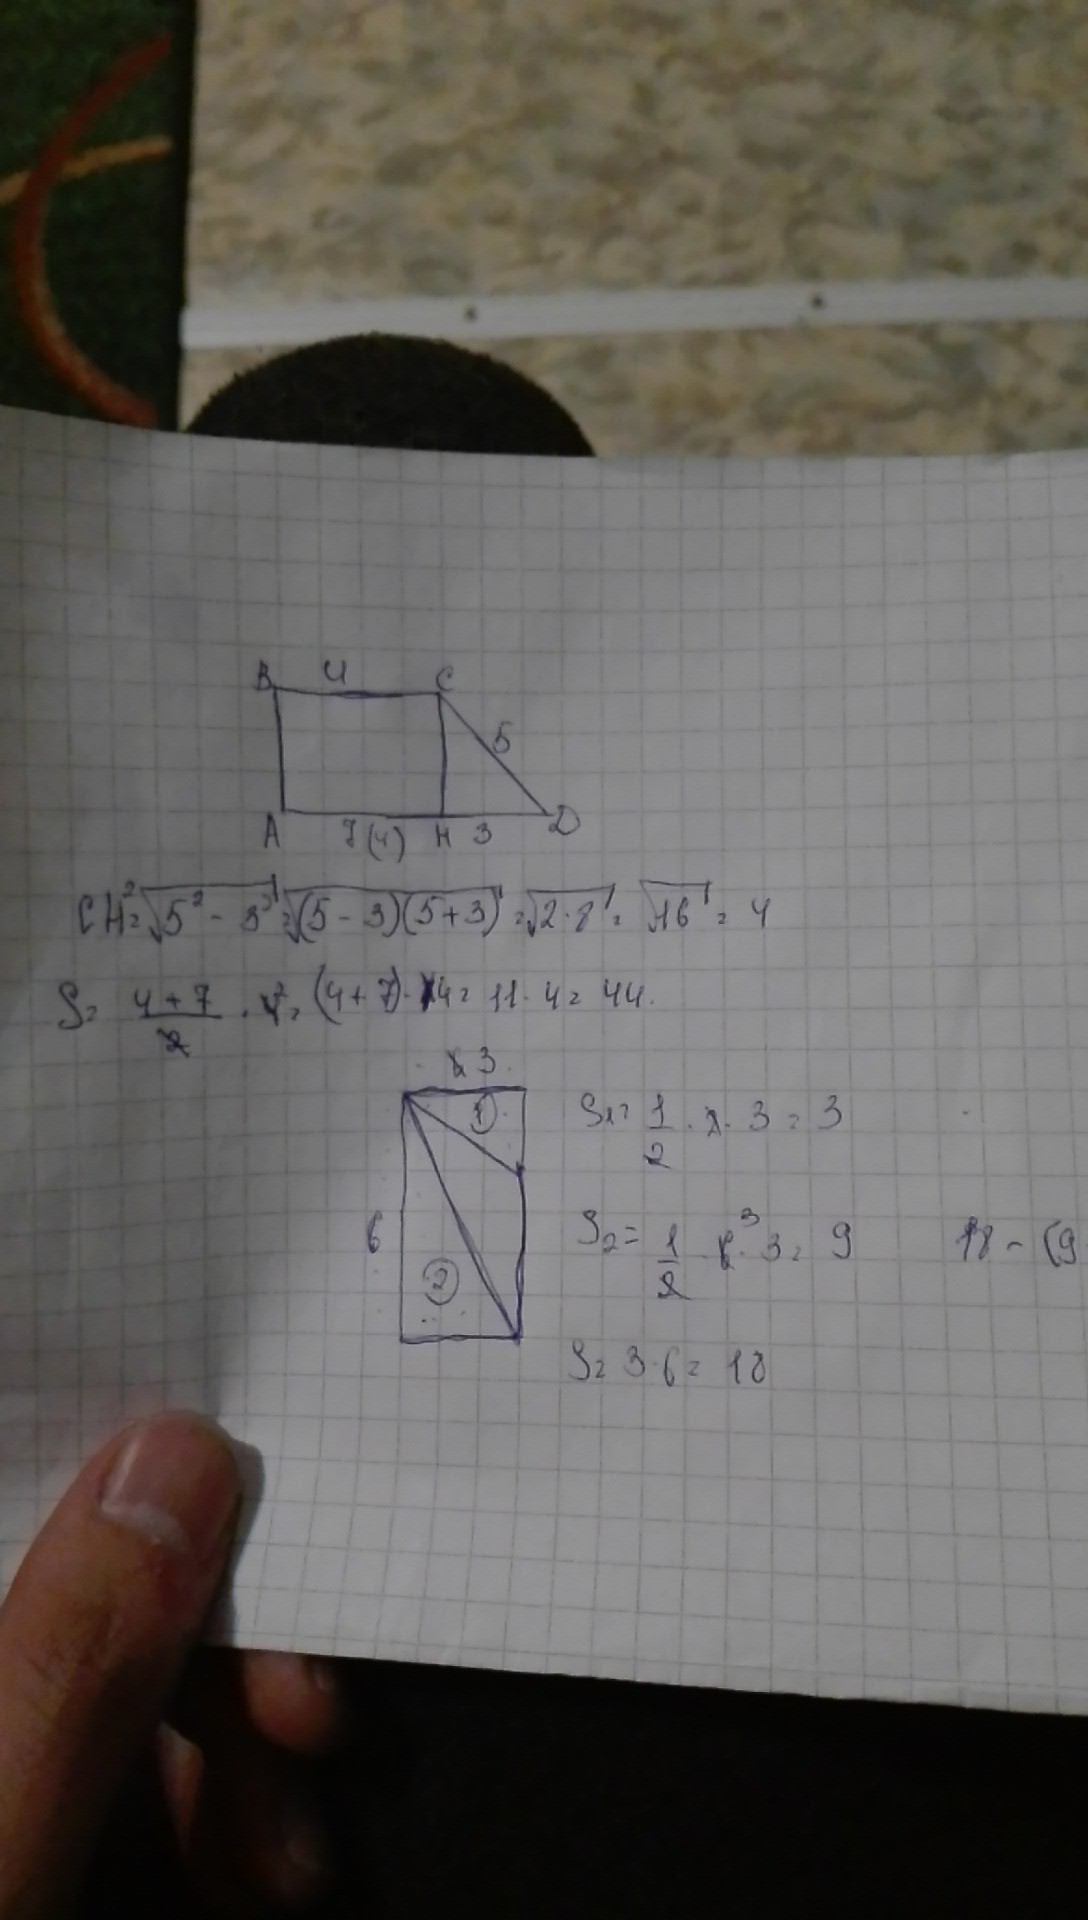 B 4 C
5
A 7(4) H 3 D
CH = √5² - 3² = √(5 - 3)(5 + 3) = √2·8 = √16 = 4
S = 4+7/2 · 4² = (4+7)· 4 = 11 · 4 = 44.
3
1
S₁ = 1/2 · 2 · 3 = 3
6
S₂ = 1/2 · 6³ · 3 = 9 18 - (9
2
S = 3·6 = 18